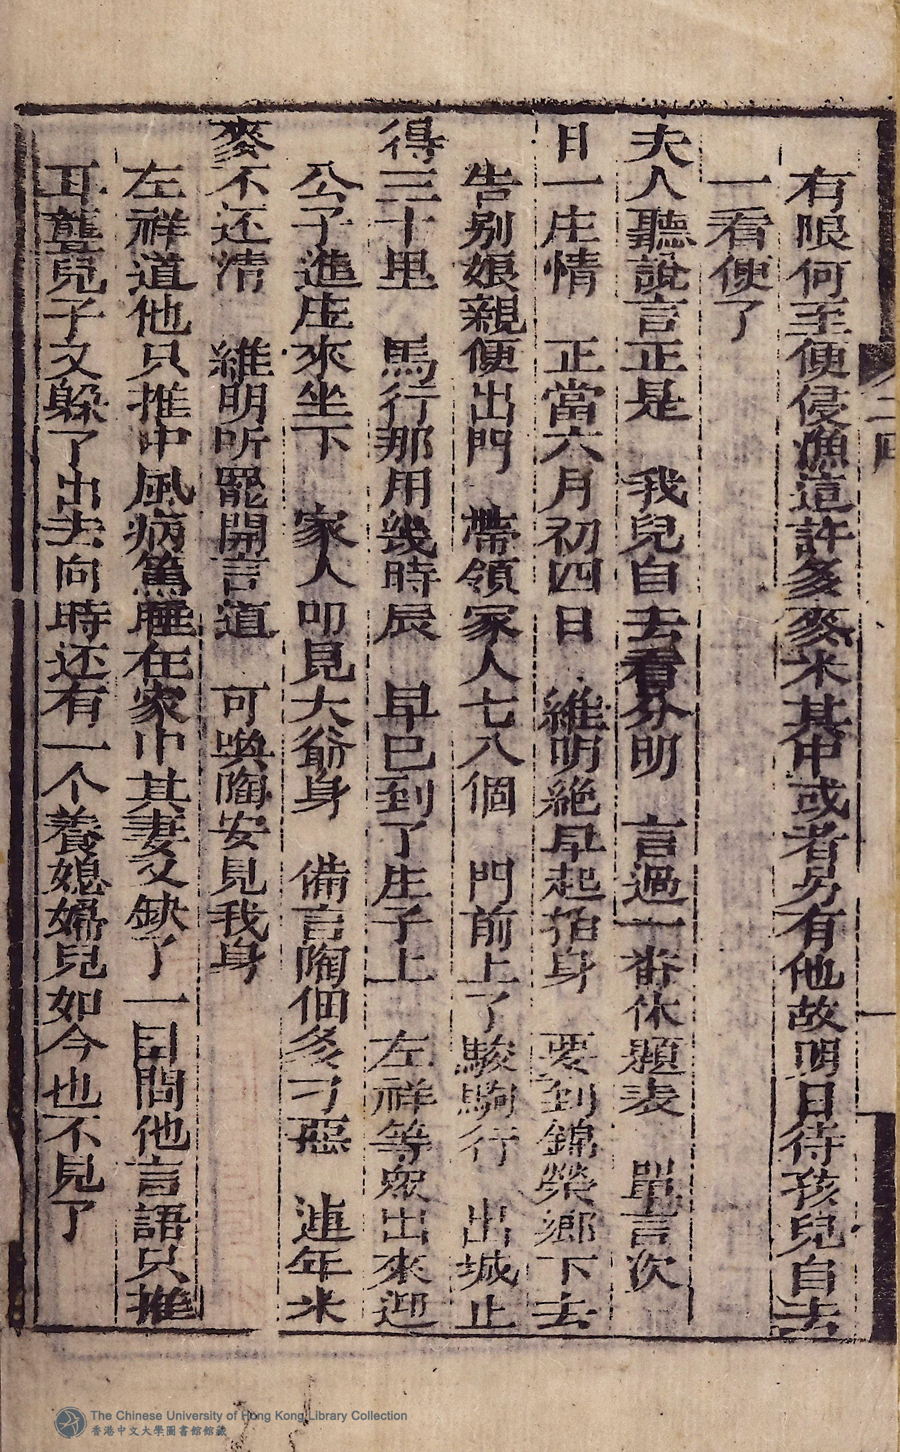 有限何至便侵漁這許多麥米其中或者另有他故明日待孩兒自去
一看便了
夫人聽說言正是　我兒自去看分明　言過一番休題表　單言次
日一庄情　正當六月初四日　維明絶早起抬身　要到錦榮鄉下去
告别娘親便出門　帶領家人七八個　門前上了駿駒行　出城止
得三十里　馬行那用幾時辰　早已到了庄子上　左祥等衆出來迎
公子進庄來坐下　家人叩見大爺身　備言陶佃多刁惡　連年米
麥不还清　維明听罷開言道　可喚陶安見我身
左祥道他只推中風病篤睡在家中其妻又缺了一目問他言語只推
耳聾兒子又躲了出去向時还有一个養媳婦兒如今也不見了
二四
The Chinese University of Hong Kong Library Collection
香港中文大學圖書館館藏